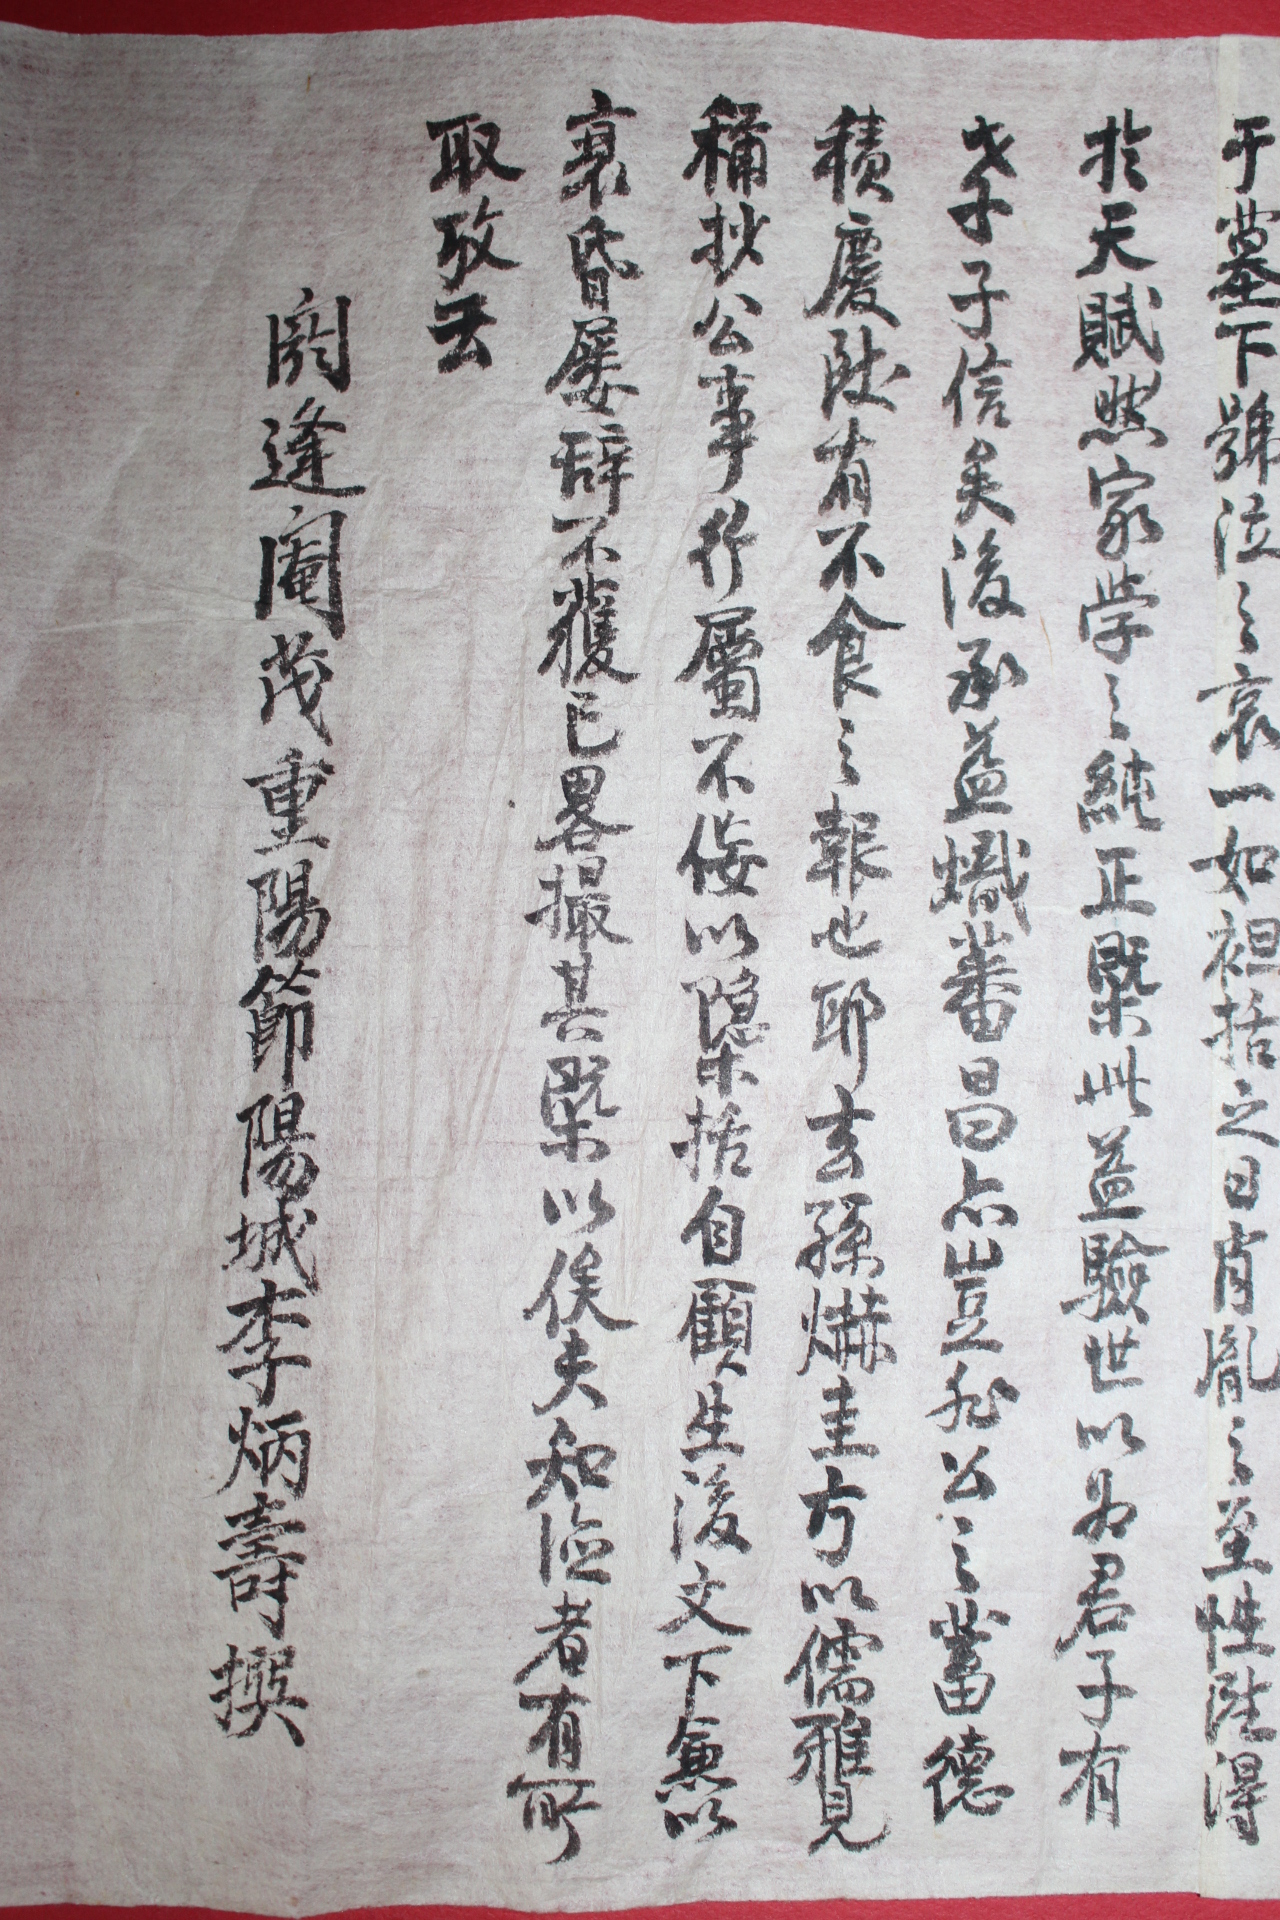 于墓下號泣之哀一如袒括之日肖胤之至性陞得
於天賦然家學之純正槩此益驗世以爲君子有
子信矣後承益熾蕃昌亦豈非公之蓄德
積慶致有不食之報也耶玄孫爀圭方以儒雅見
稱抄公事行屬不侫以隱栝自顧生後文下兼以
衰昏屢辭不獲已畧撮其槩以俟夫知德者有所
取攷云
閼逢閹茂重陽節陽城李炳壽撰